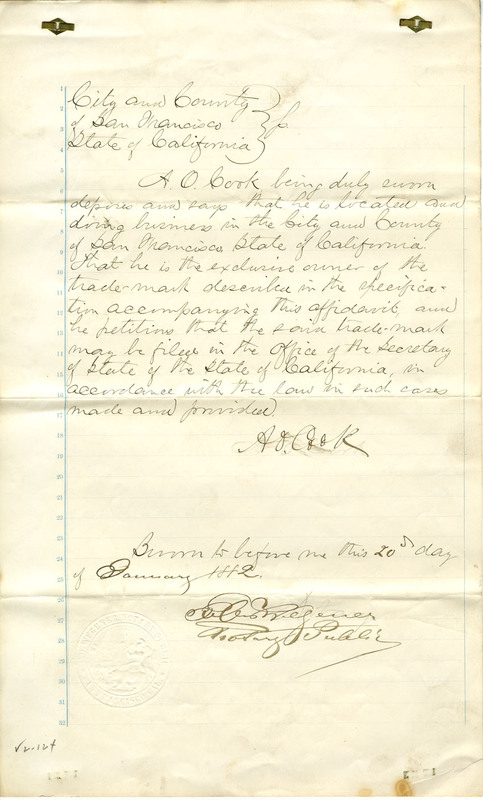 City and County
of San Francisco } ss
State of California
A. O. Cook being duly sworn
deposes and says that he is located and
doing business in the City and County
of San Francisco State of California.
That he is the exclusive owner of the
trade-mark described in the specifica-
tion accompanying this affidavit, and
he petitions that the said trade-mark
may be filed in the Office of the Secretary
of State of the State of California, in
accordance with the law in such cases
made and provided.
A. O. Cook
Sworn to before me this 20th day
of January 1882.
Notary Public
1
2
3
4
5
6
7
8
9
10
11
12
13
14
15
16
17
18
19
20
21
22
23
24
25
26
27
28
29
30
31
32